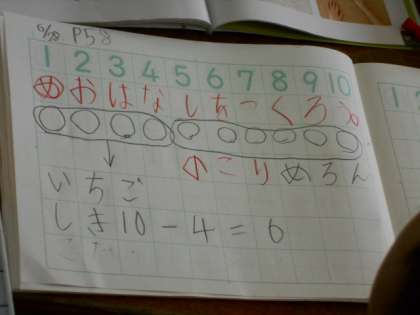 P58
1 2 3 4 5 6 7 8 9 10
めおはなしをつくろう
のこりめろん
いちご
しき10-4=6
1